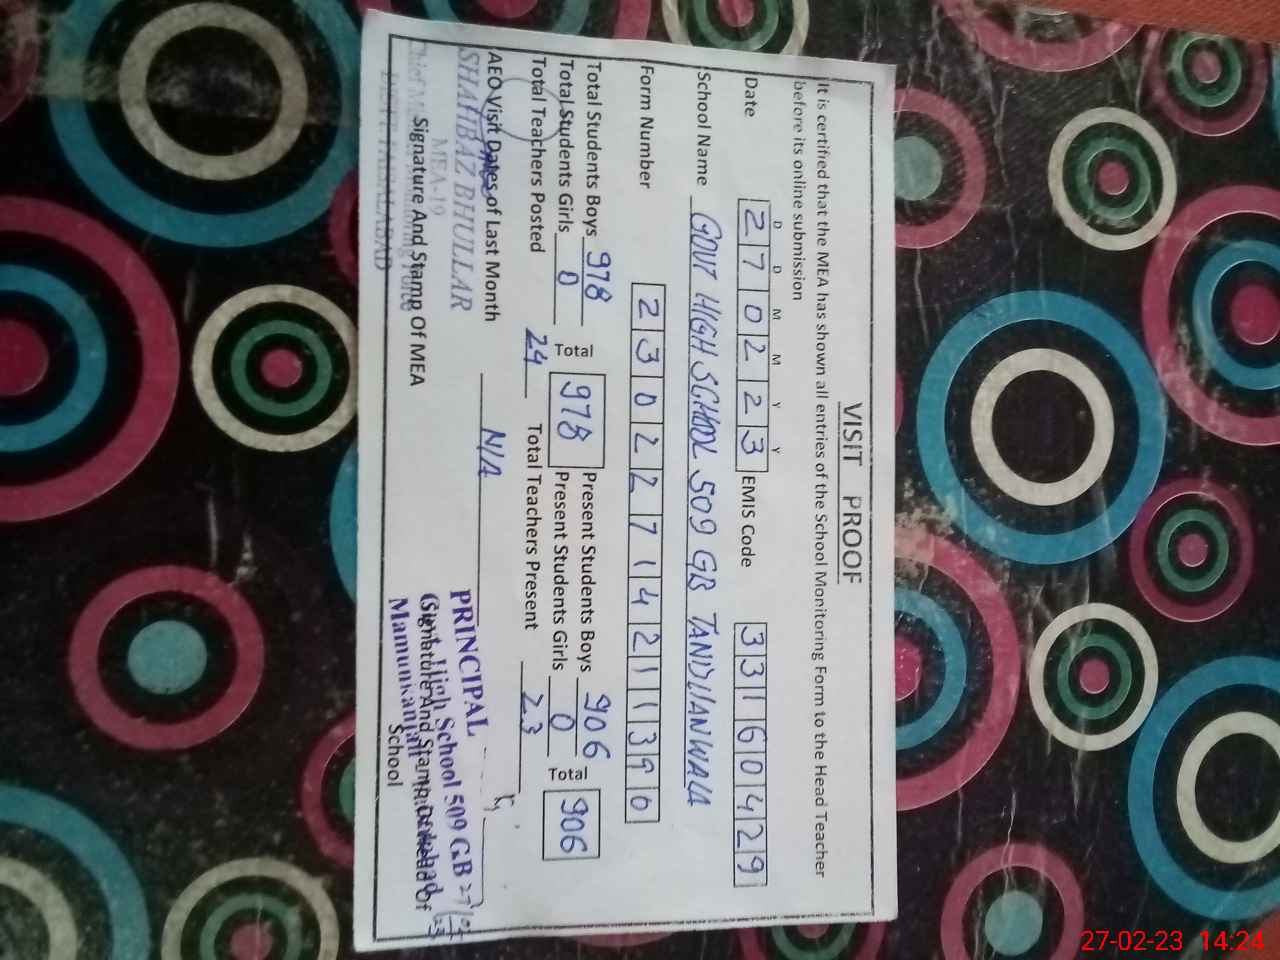 VISIT PROOF
It is certified that the MEA has shown all entries of the School Monitoring Form to the Head Teacher
before its online submission
D D M M Y Y
Date 270223 EMIS Code 33160429
School Name GOVT HIGH SCHOOL 509 GB TANDLIANWALA
Form Number 23022714211390
Total Students Boys 978 Present Students Boys 906
Total 978 Total 906
Total Students Girls 0 Present Students Girls 0
Total Teachers Posted 24 Total Teachers Present 23
AEO Visit Dates of Last Month N/A
SHAHBAZ BHULLAR
MEA-19
Signature And Stamp Of MEA
PRINCIPAL
High School 509 GB
(Signature And Stamp Of Head Of
Mamunkanjan
School
27-02-23 14:24